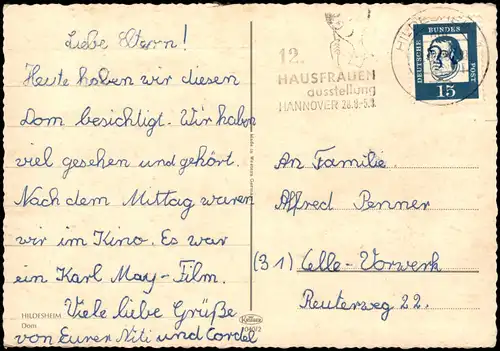 Liebe Eltern!
Heute haben wir diesen
Dom besichtigt. Wir haben
viel gesehen und gehört.
Nach dem Mittag waren
wir im Kino. Es war
ein Karl May-Film.
Viele liebe Grüße
von Eurer Niti und Cordel
HILDESHEIM
Dom
Made in Western Germany
Krüger
12.
HAUSFRAUEN
ausstellung
HANNOVER 28.8.-5.9.
DEUTSCHE BUNDESPOST
15
An Familie
Alfred Penner
(31) Celle-Vorwerk
Reuterweg 22.